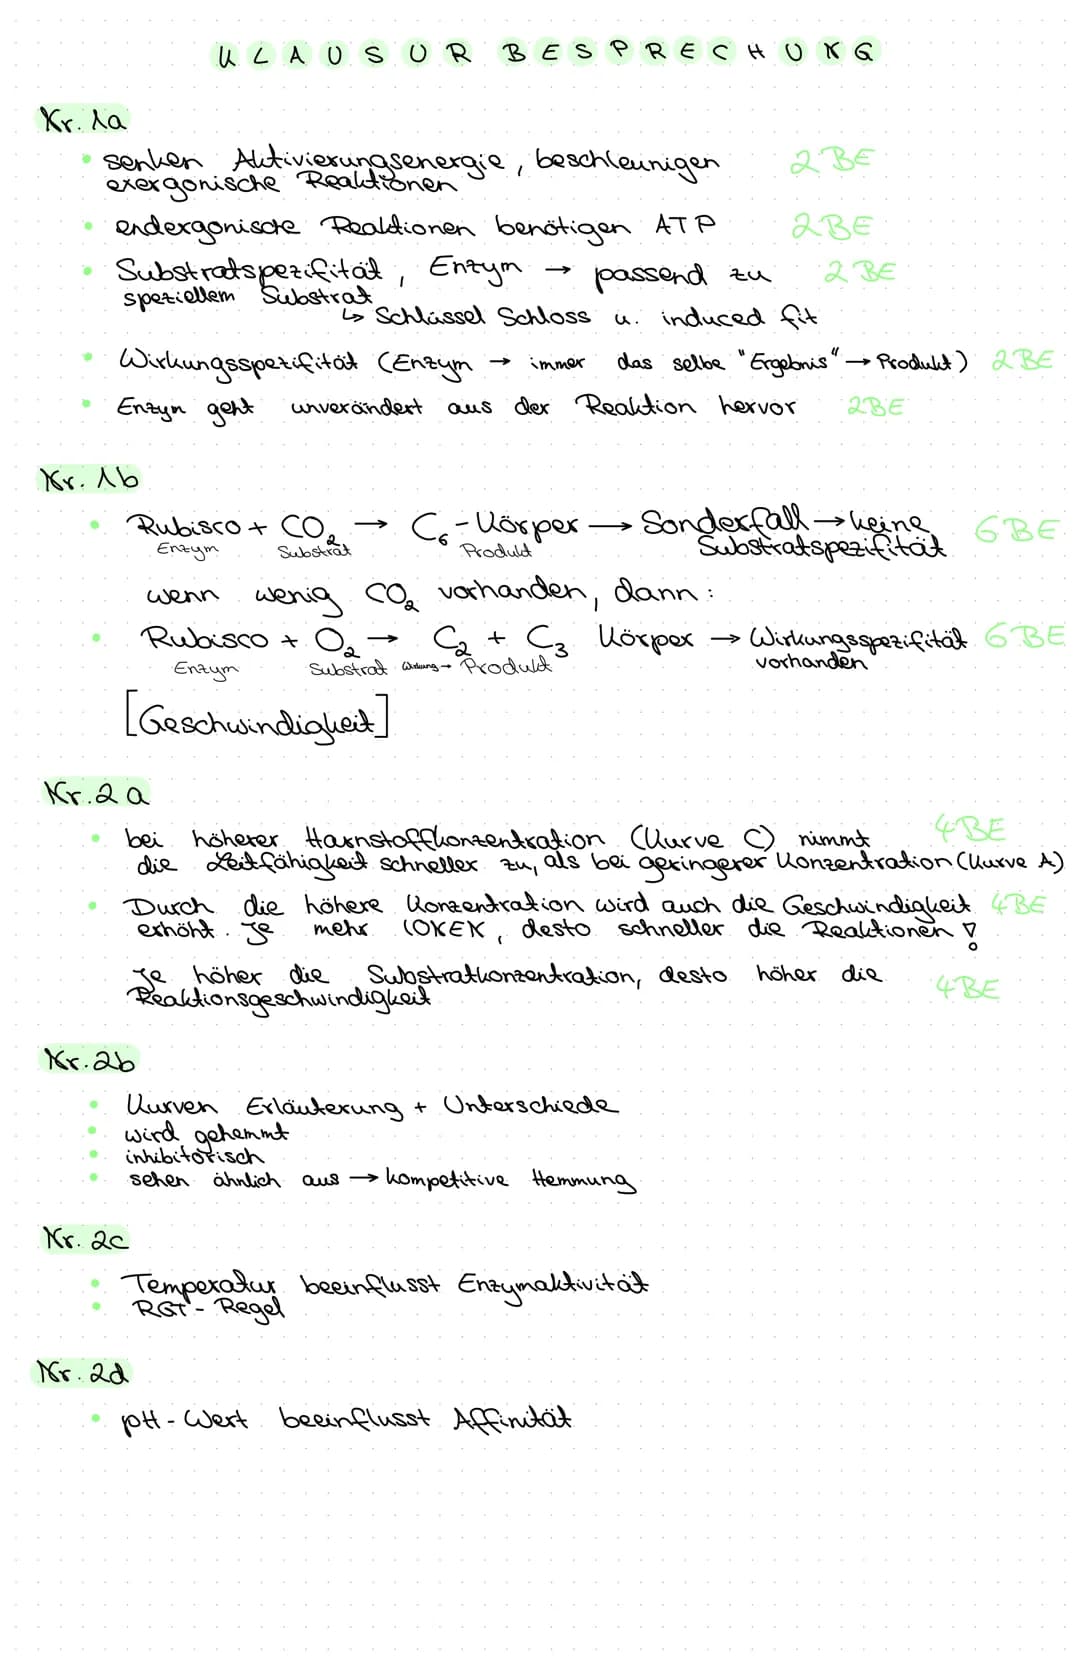 KLAUSUR BESPRECHUNG
Nr. 1a
• senken Aktivierungsenergie, beschleunigen 2 BE
exergonische Reaktionen
• endergonische Reaktionen benötigen ATP 2BE
• Substratspezifität, Enzym → passend zu 2 BE
speziellem Substrat
↳ Schlüssel Schloss u. induced fit
• Wirkungsspezifität (Enzym → immer das selbe "Ergebnis" → Produkt) 2BE
• Enzym geht unverändert aus der Reaktion hervor 2BE
Nr. 1b
• Rubisco + CO₂ → C₆-Körper → Sonderfall → keine 6BE
Enzym Substrat Produkt Substratspezifität
wenn wenig CO₂ vorhanden, dann:
• Rubisco + O₂ → C₂ + C₃ Körper → Wirkungsspezifität 6BE
Enzym Substrat Wirkung→ Produkt vorhanden
[Geschwindigkeit]
Nr. 2a
• bei höherer Harnstoffkonzentration (Kurve C) nimmt 4BE
die Leitfähigkeit schneller zu, als bei geringerer Konzentration (Kurve A)
• Durch die höhere Konzentration wird auch die Geschwindigkeit 4BE
erhöht. Je mehr IONEN, desto schneller die Reaktionen!
Je höher die Substratkonzentration, desto höher die
Reaktionsgeschwindigkeit 4BE
Nr. 2b
• Kurven Erläuterung + Unterschiede
• wird gehemmt
• inhibitorisch
• sehen ähnlich aus → kompetitive Hemmung
Nr. 2c
• Temperatur beeinflusst Enzymaktivität
• RGT-Regel
Nr. 2d
• pH-Wert beeinflusst Affinität